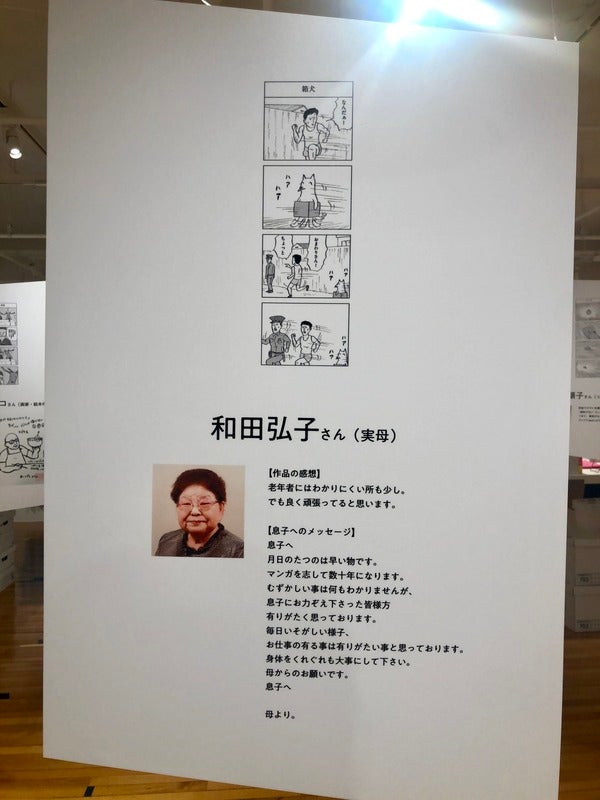 箱犬
なんだぁー
ハァ
ハァ
おまわりさんっ
ちょっと
ハァ
ハァ
ハァ
ハァ
和田弘子さん（実母）
【作品の感想】
老年者にはわかりにくい所も少し。
でも良く頑張ってると思います。
【息子へのメッセージ】
息子へ
月日のたつのは早い物です。
マンガを志して数十年になります。
むずかしい事は何もわかりませんが、
息子にお力ぞえ下さった皆様方
有りがたく思っております。
毎日いそがしい様子、
お仕事の有る事は有りがたい事と思っております。
身体をくれぐれも大事にして下さい。
母からのお願いです。
息子へ
母より。